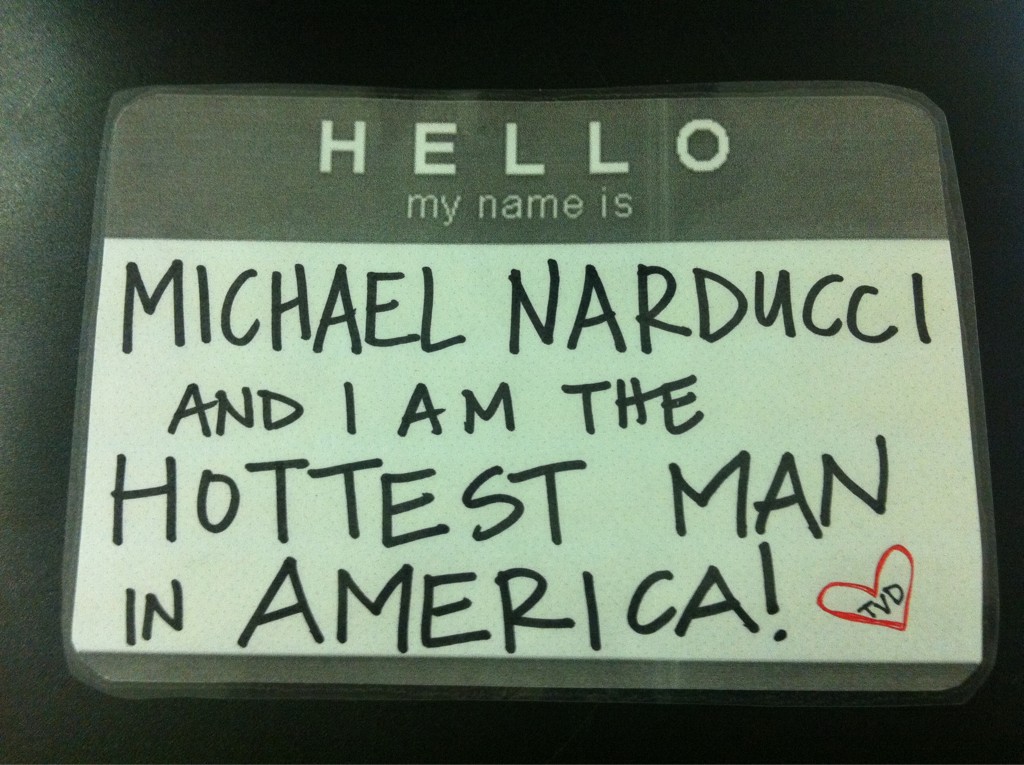 HELLO
my name is
MICHAEL NARDUCCI
AND I AM THE
HOTTEST MAN
IN AMERICA!
TVD